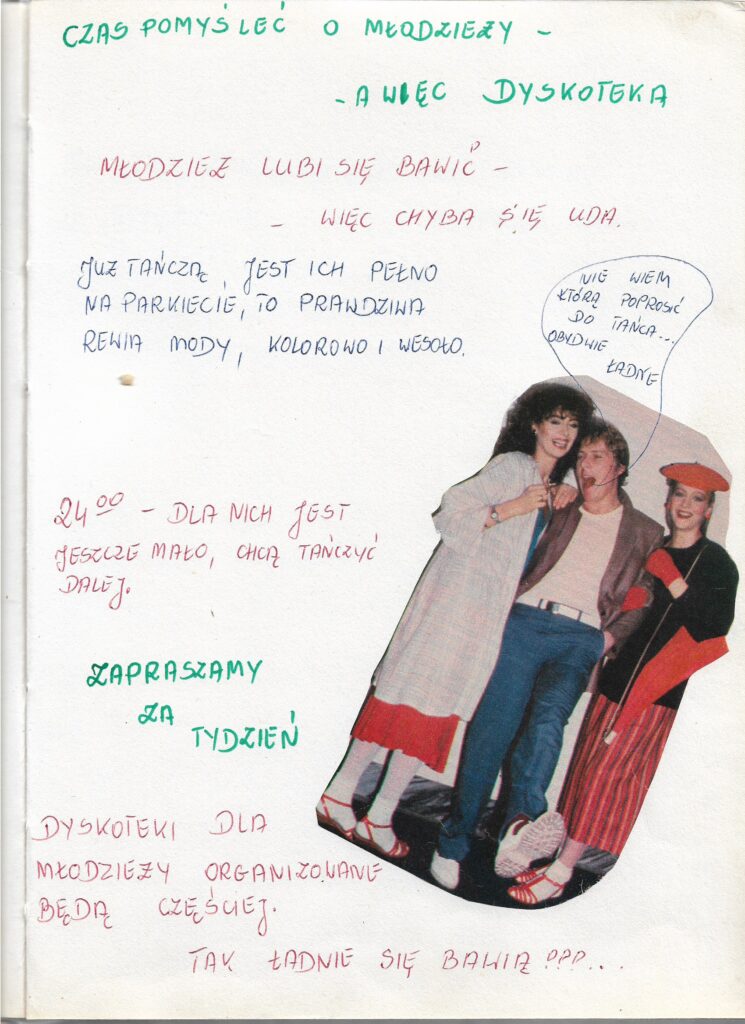 CZAS POMYŚLEĆ O MŁODZIEŻY -
- A WIĘC DYSKOTEKA
MŁODZIEŻ LUBI SIĘ BAWIĆ -
- WIĘC CHYBA SIĘ UDA.
JUŻ TAŃCZĄ, JEST ICH PEŁNO
NA PARKIECIE, TO PRAWDZIWA
REWIA MODY, KOLOROWO I WESOŁO.
NIE WIEM
KTÓRĄ POPROSIĆ
DO TAŃCA...
OBYDWIE
ŁADNE
24 00 - DLA NICH JEST
JESZCZE MAŁO, CHCĄ TAŃCZYĆ
DALEJ.
ZAPRASZAMY
ZA
TYDZIEŃ
DYSKOTEKI DLA
MŁODZIEŻY ORGANIZOWANE
BĘDĄ CZĘŚCIEJ.
TAK ŁADNIE SIĘ BAWIĄ???...